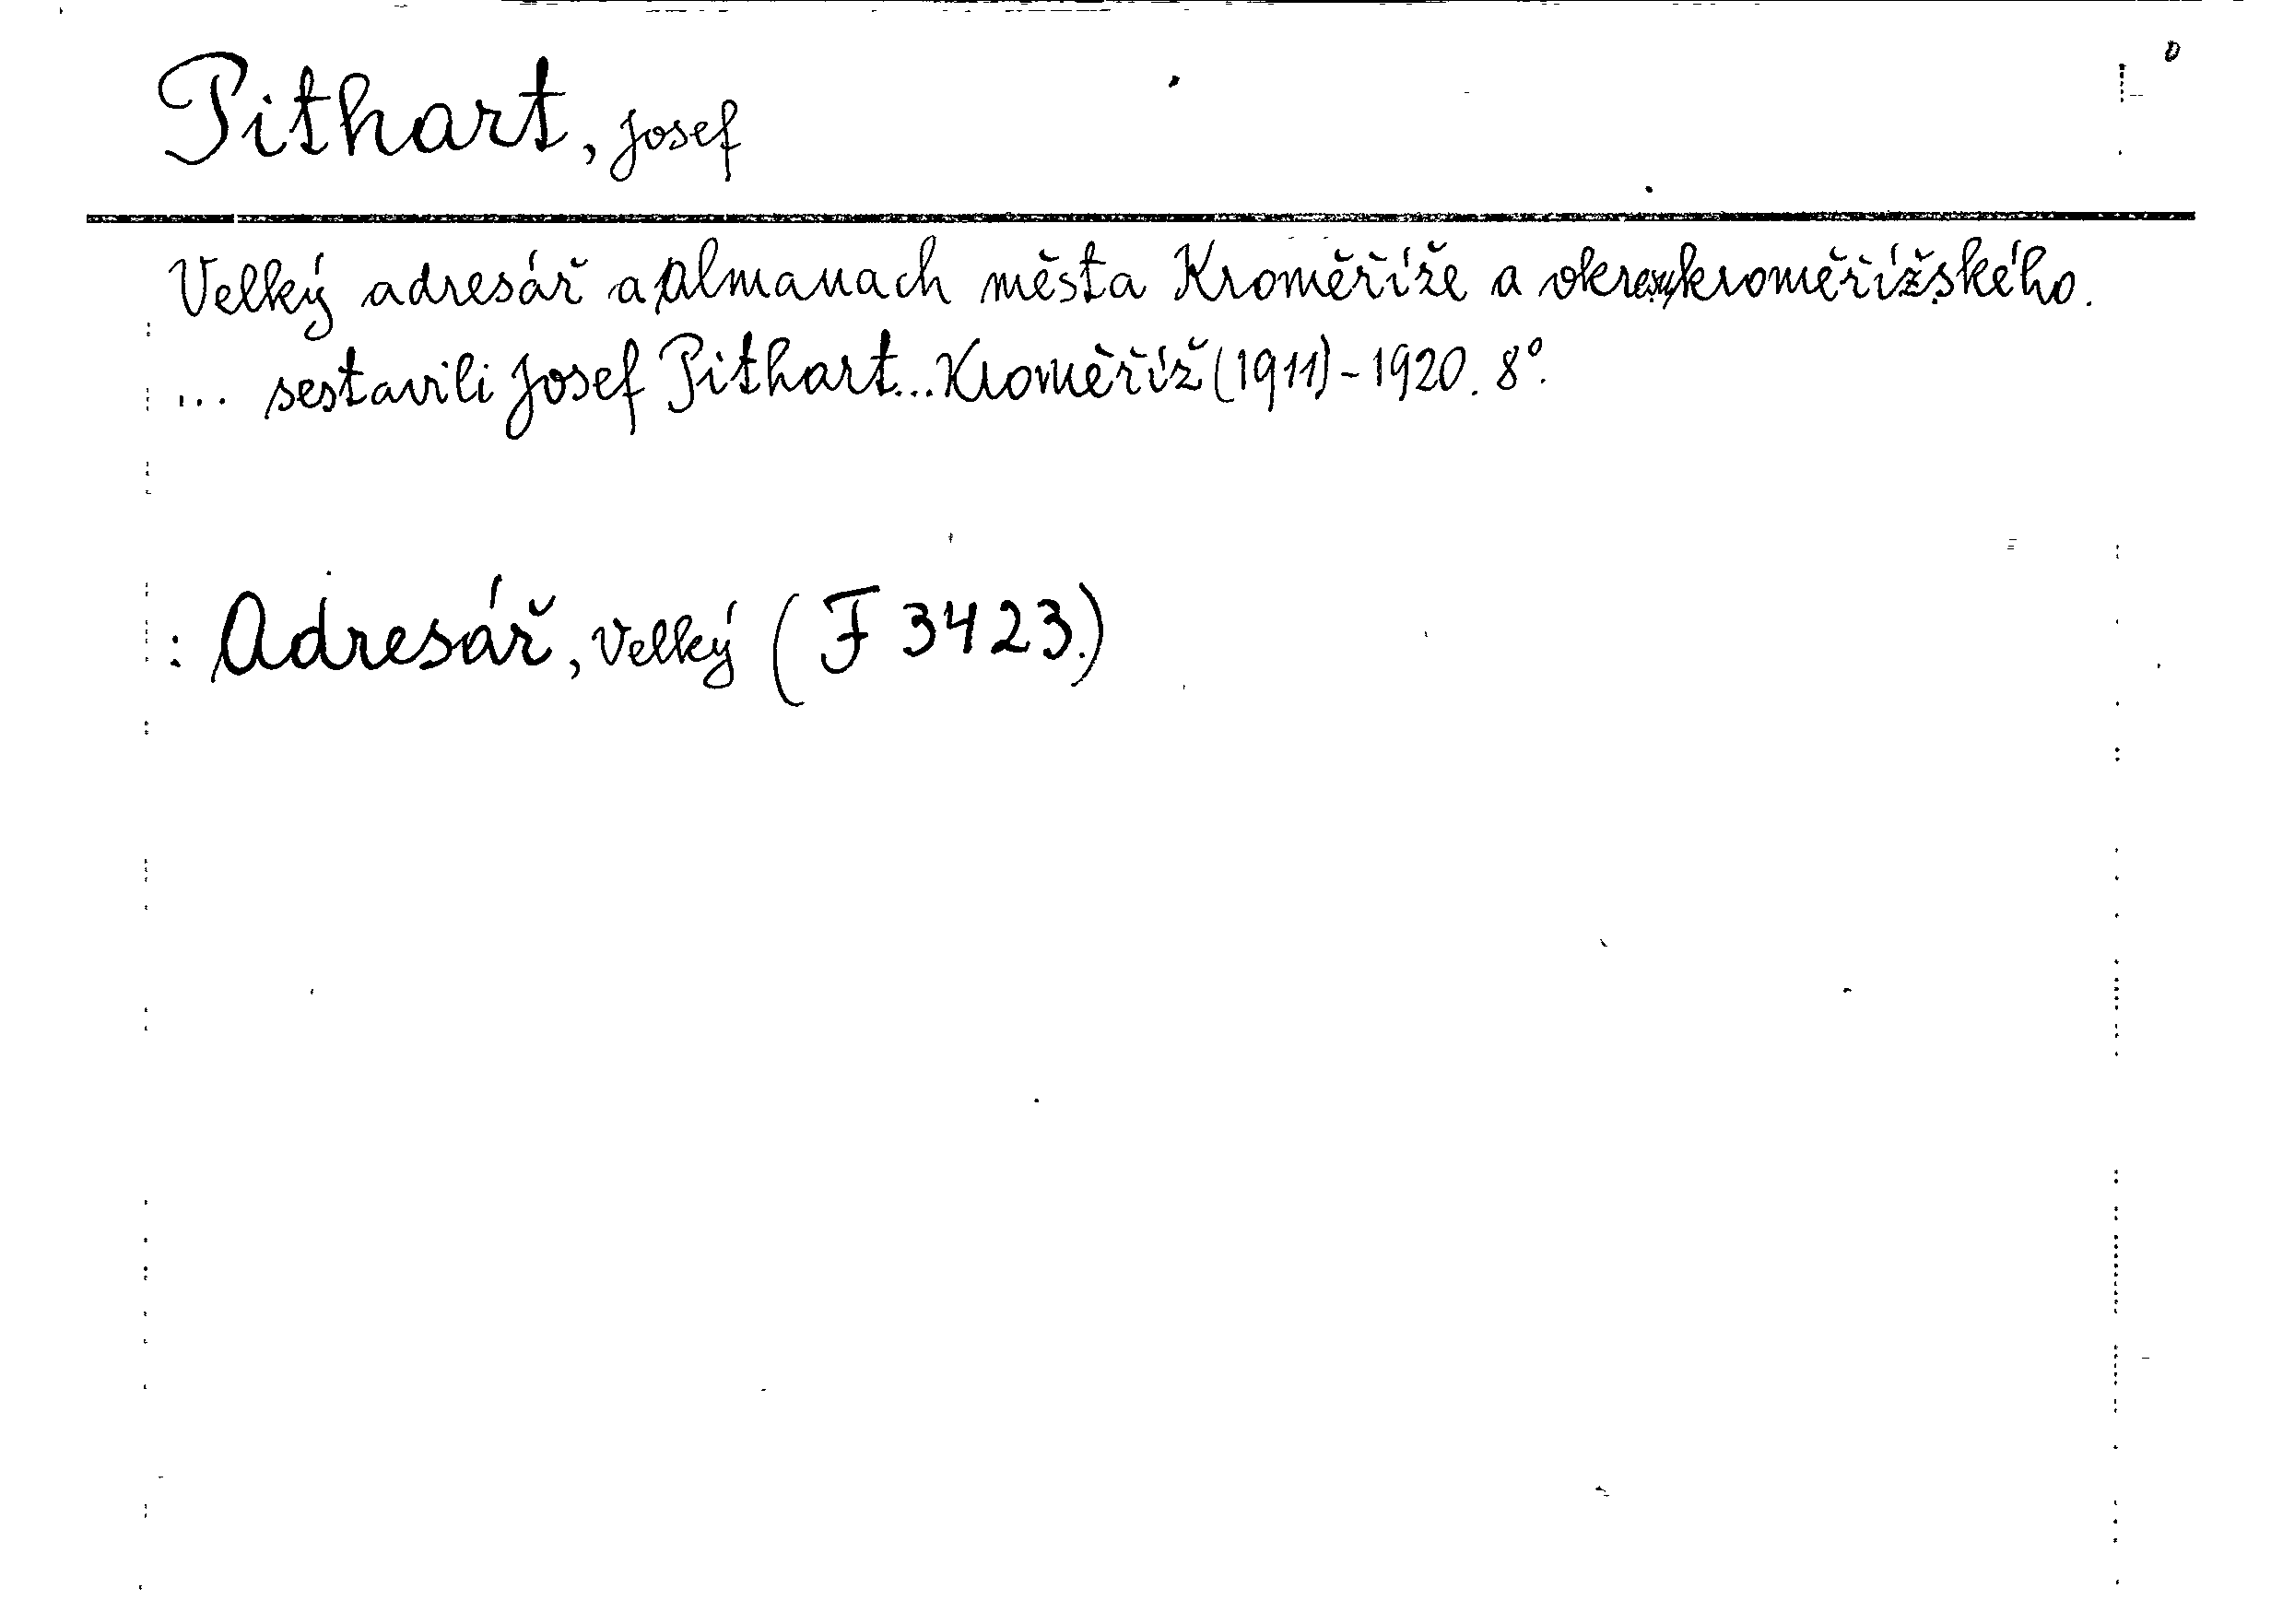 Pithart, Josef
Velký adresář a almanach města Kroměříže a okresu kroměřížského.
... sestavili Josef Pithart... Kroměříž (1911) - 1920. 8°.
: Adresář, Velký (F 3423.)